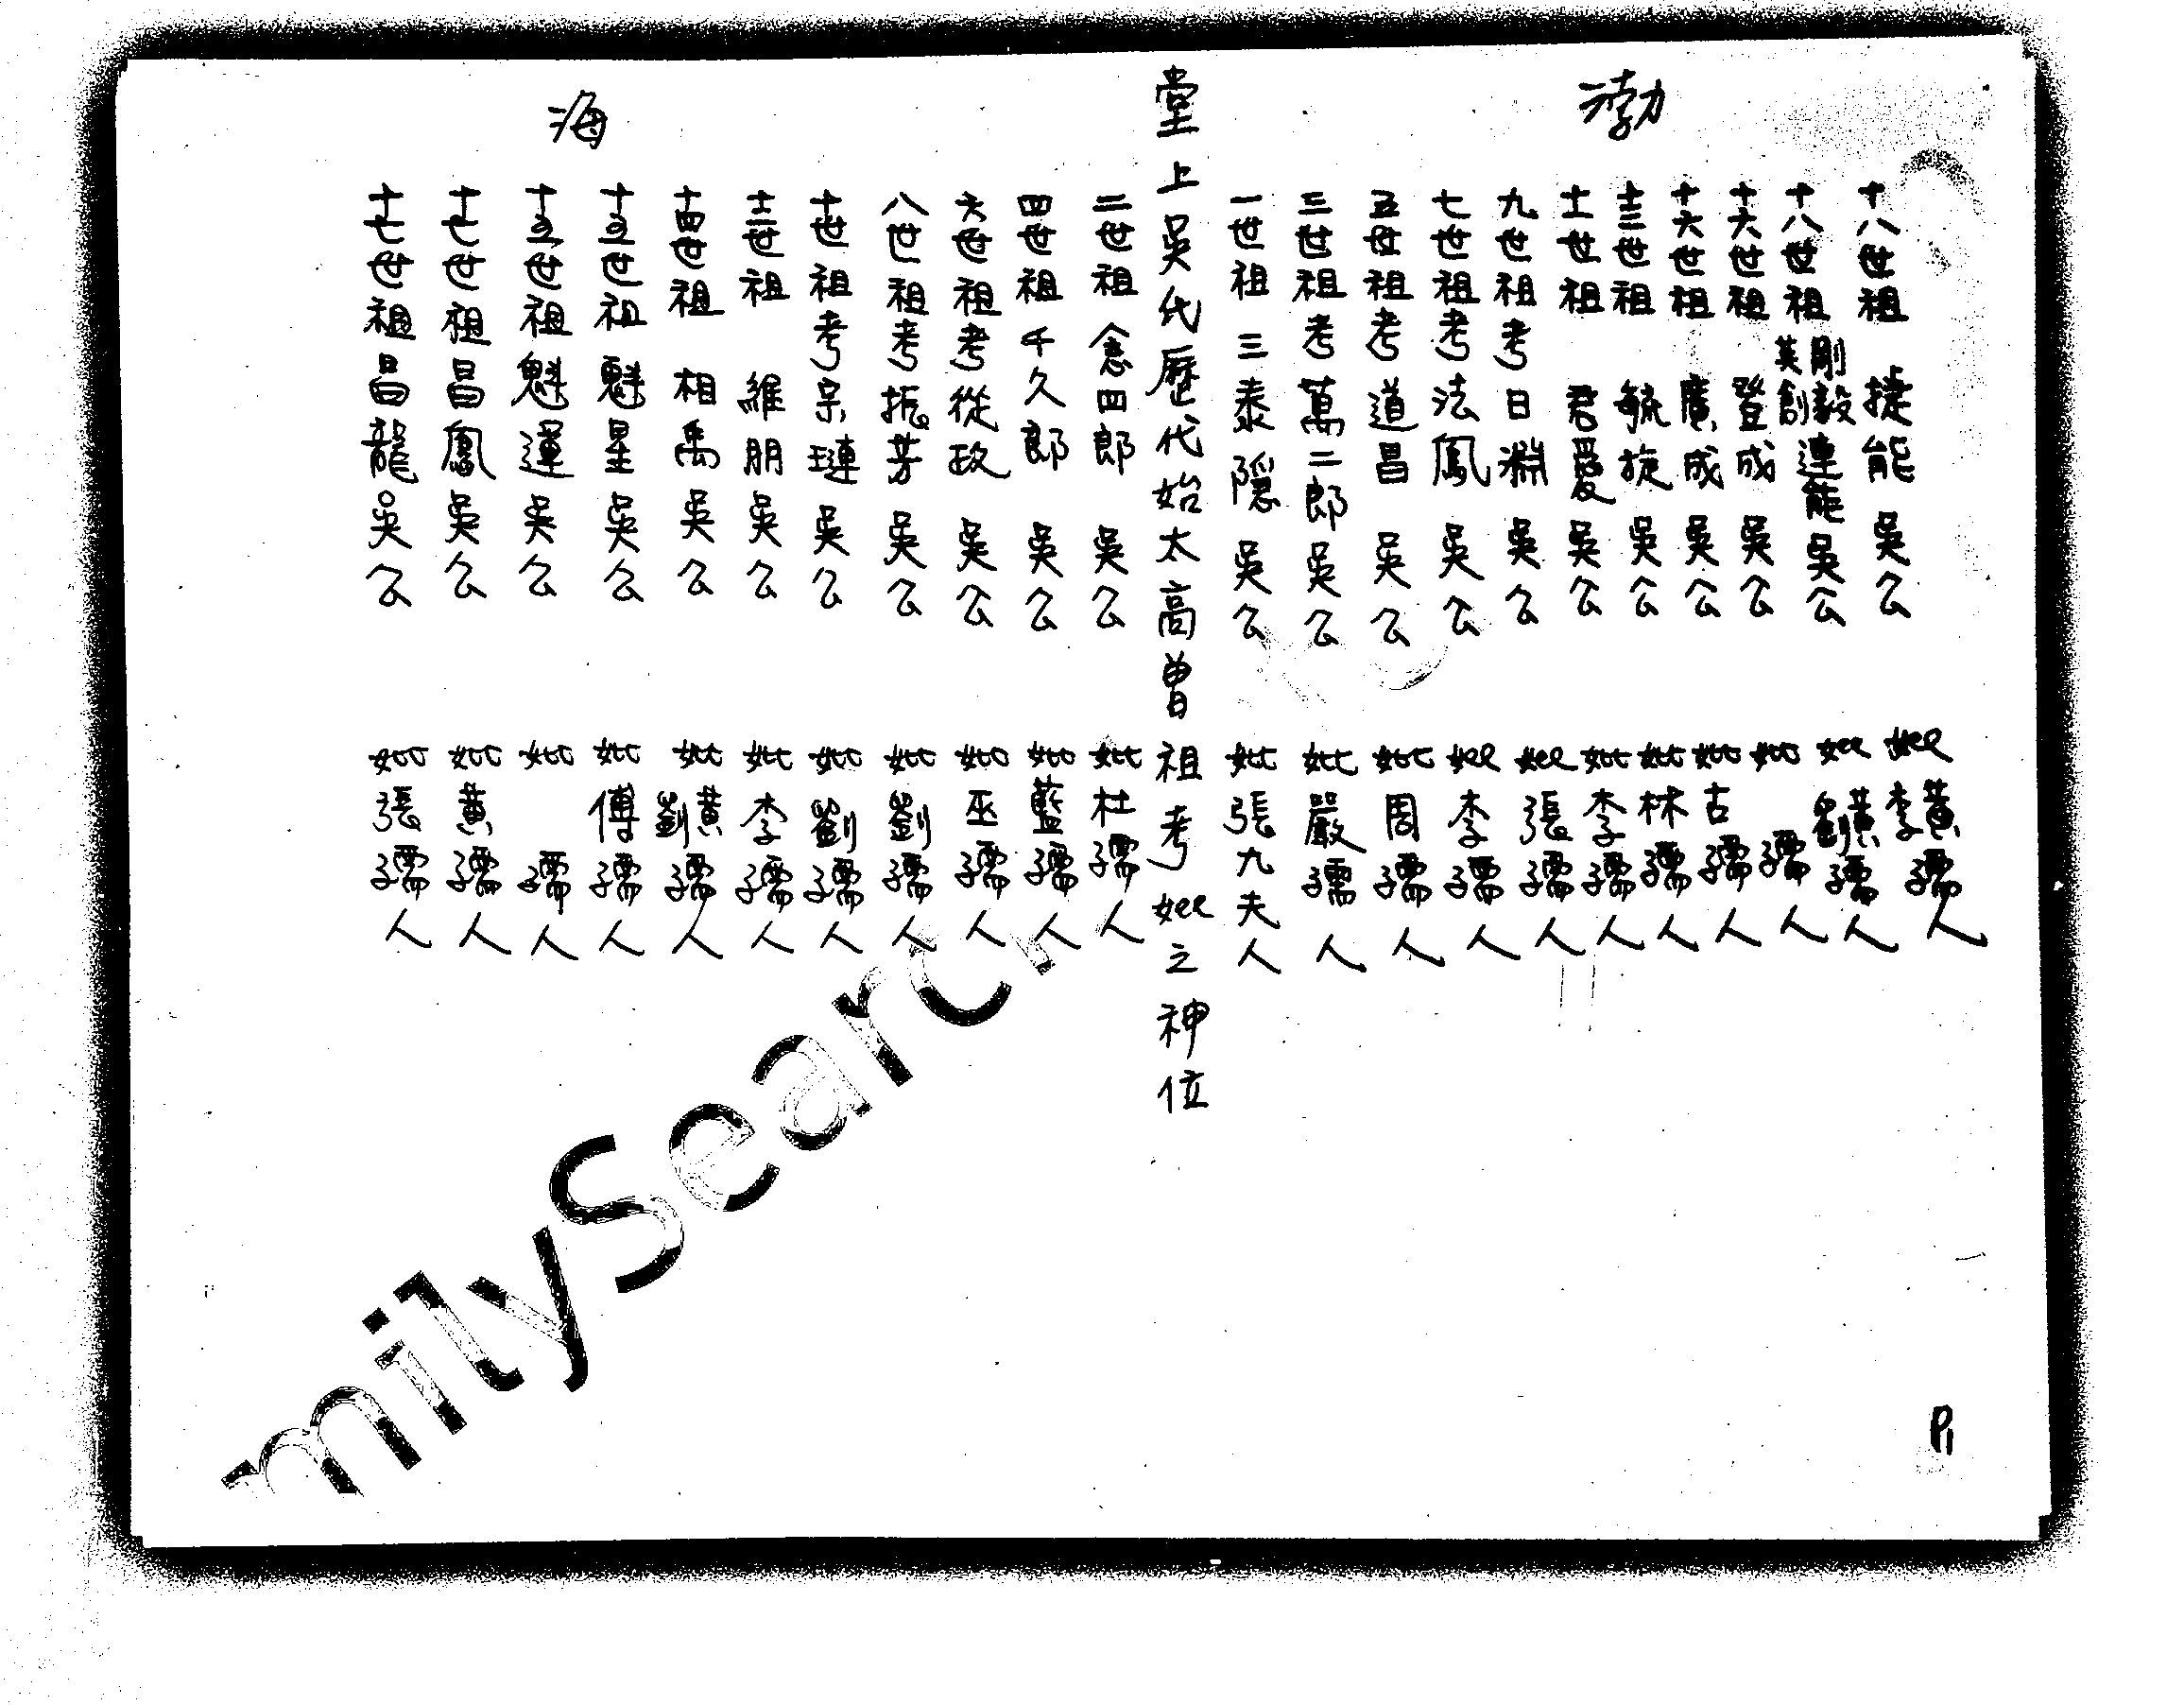 渤海
十八世祖 捷能 吳公 妣 黃 李 孺人
十八世祖 剛毅 英創 連能 吳公 妣 黃 劉 孺人
十六世祖 登成 吳公 妣 孺人
十六世祖 廣成 吳公 妣 古 孺人
十三世祖 毓旋 吳公 妣 林 孺人
十一世祖 君愛 吳公 妣 李 孺人
九世祖考 日淵 吳公 妣 張 孺人
七世祖考 法鳳 吳公 妣 李 孺人
五世祖考 道昌 吳公 妣 周 孺人
三世祖考 萬二郎 吳公 妣 嚴 孺人
一世祖 三泰 隱 吳公 妣 張九夫人
堂上吳氏歷代始太高曾祖考妣之神位
二世祖 念四郎 吳公 妣 杜 孺人
四世祖 千久郎 吳公 妣 藍 孺人
六世祖考 從政 吳公 妣 巫 孺人
八世祖考 振芳 吳公 妣 劉 孺人
十世祖考 宗璉 吳公 妣 劉 孺人
十二世祖 維朋 吳公 妣 李 孺人
十四世祖 相禹 吳公 妣 黃 劉 孺人
十五世祖 魁星 吳公 妣 傅 孺人
十五世祖 魁運 吳公 妣 孺人
十七世祖 昌鳳 吳公 妣 黃 孺人
十七世祖 昌龍 吳公 妣 張 孺人
P1
milySearch